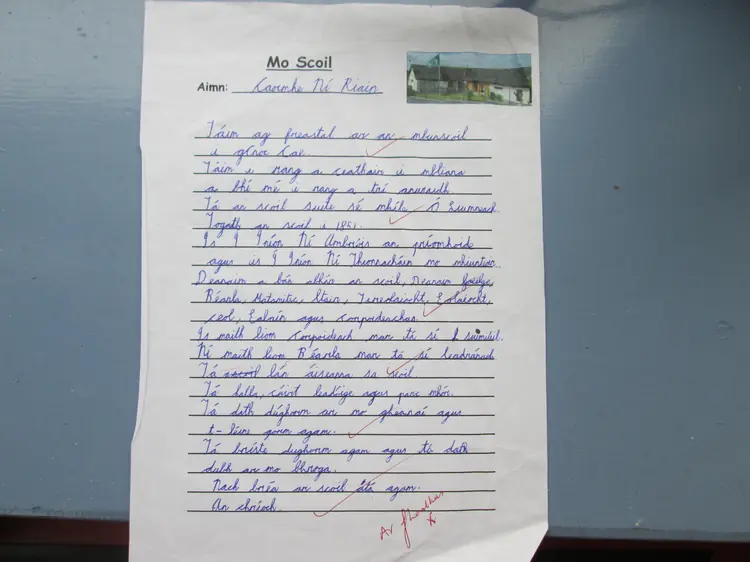 Mo Scoil
Aimn: Caoimhe Ní Riain
Táim ag freastal ar an mbunscoil
i gCnoc Cae
Táim i rang a ceathair i mbliana
a bhí mé i rang a trí anuraidh
Tá an scoil suite sé mhíle Ó Luimneach
Togadh an scoil i 1851.
Is Í Iníon Ní Ambróis an príomhoide
agus is Í Iníon Ní Thionnacháin mo mhúnteoir.
Deanaim a bán ábhán an scoil, Deanaim Gaeilge,
Béarla, Matamitic, Stair, Tíreolaíocht, Eolaíocht,
ceol, Ealaín agus Corpoideachas.
Is maith liom Corpoideach mar tá sí suimiúil.
Ní maith liom Béarla mar tá sí leadránach
Tá lán áiseanna sa scoil.
Tá halla, cúirt leadóige agus parc mhór.
Tá dath dúghorm ar mo gheansaí agus
t-léine gorm agam.
Tá bríste dughorm agam agus tá dath
dubh ar mo bhroga.
Nach bréa an scoil átá agam.
An chríoch.
Ar fheabhas